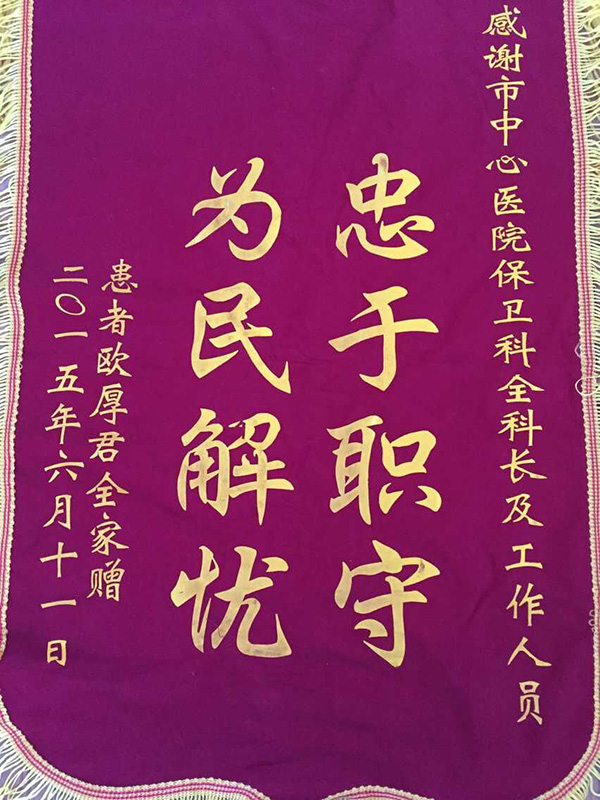 感谢市中心医院保卫科全科长及工作人员
忠于职守
为民解忧
患者欧厚君全家赠
二〇一五年六月十一日